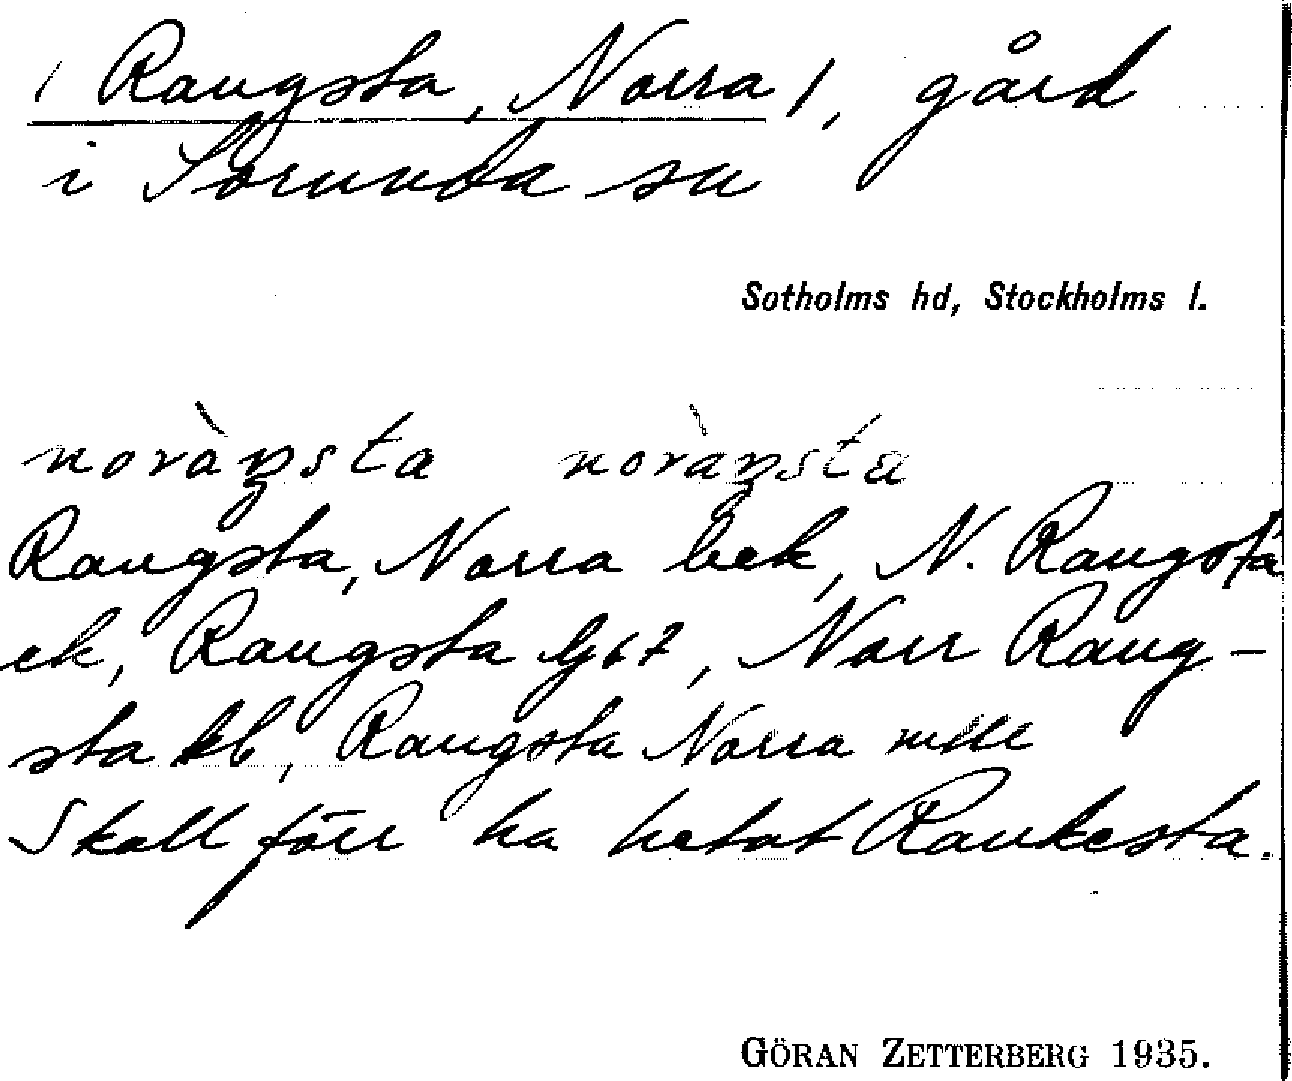 (Rangsta, Norra), gård
i Sorunda sn
Sotholms hd, Stockholms l.
noràŋsta noràŋsta
Rangsta, Norra bek, N. Rangsta
ek, Rangsta Gj67, Norr Rang-
sta kb, Rangsta Norra mtlt
Skall förr ha hetat Rankesta.
GÖRAN ZETTERBERG 1935.